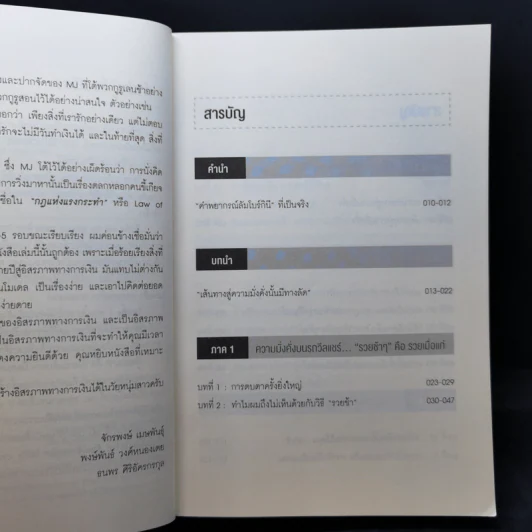 และปากจัดของ MJ ที่ได้พวกกูรูเลนช้าอย่าง
วกกูรูสอนไว้ได้อย่างน่าสนใจ ตัวอย่างเช่น
อกว่า เพียงสิ่งที่เรารักอย่างเดียว แต่ไม่ตอบ
รักจะไม่มีวันทำเงินได้ และในท้ายที่สุด สิ่งที่
ซึ่ง MJ โต้ไว้ได้อย่างเผ็ดร้อนว่า การนั่งคิด
การวิ่งมาหานั้นเป็นเรื่องตลกหลอกคนขี้เกียจ
เชื่อใน "กฎแห่งแรงกระทำ" หรือ Law of
5 รอบขณะเรียบเรียง ผมค่อนข้างเชื่อมั่นว่า
ังสือเล่มนี้นั้นถูกต้อง เพราะเมื่อร้อยเรียงสิ่งที่
ายปีสู่อิสรภาพทางการเงิน มันแทบไม่ต่างกัน
นโมเดล เป็นเรื่องง่าย และเอาไปคิดต่อยอด
ง่ายดาย
ของอิสรภาพทางการเงิน และเป็นอิสรภาพ
ป็นอิสรภาพทางการเงินที่จะทำให้คุณมีเวลา
ดงความยินดีด้วย คุณหยิบหนังสือที่เหมาะ
ร้างอิสรภาพทางการเงินได้ในวัยหนุ่มสาวครับ
จักรพงษ์ เมษพันธุ์
พงษ์พันธ์ วงศ์หนองเตย
ธนพร ศิริอัครกรกุล
สารบัญ
คำนำ
"คำพยากรณ์ลัมโบร์กินี" ที่เป็นจริง 010-012
บทนำ
"เส้นทางสู่ความมั่งคั่งนั้นมีทางลัด" 013-022
ภาค 1 ความมั่งคั่งบนรถวีลแชร์... "รวยช้าๆ" คือ รวยเมื่อแก่
บทที่ 1 : การตบตาครั้งยิ่งใหญ่ 023-029
บทที่ 2 : ทำไมผมถึงไม่เห็นด้วยกับวิธี "รวยช้า" 030-047